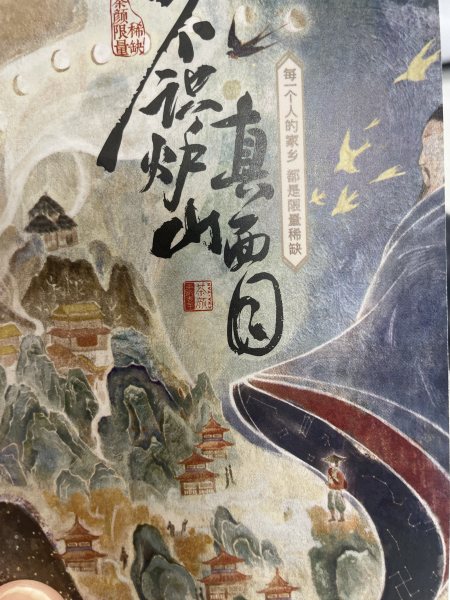 茶颜限量
稀缺
不识炉山
真面目
每一个人的家乡 都是限量稀缺
茶颜